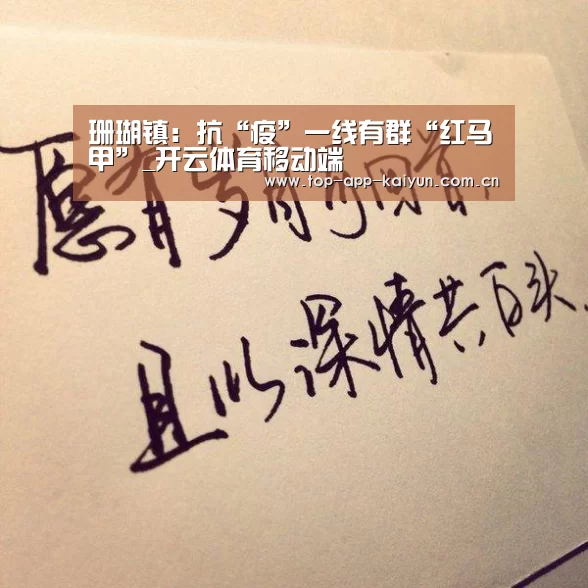 珊瑚镇：抗“疫”一线有群“红马
甲”_开云体育移动端
www.top-app-kaiyun.com.cn
愿有岁月可回首
且以深情共百头